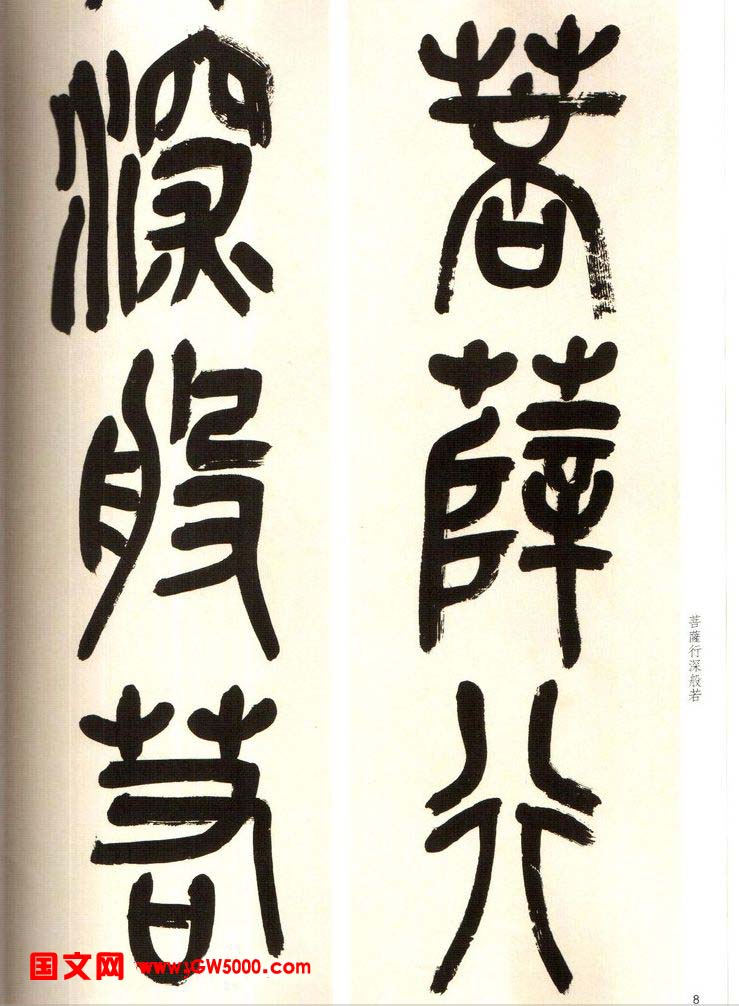 菩薩行
深般若
菩薩行深般若
国文网 www.GW5000.com
8